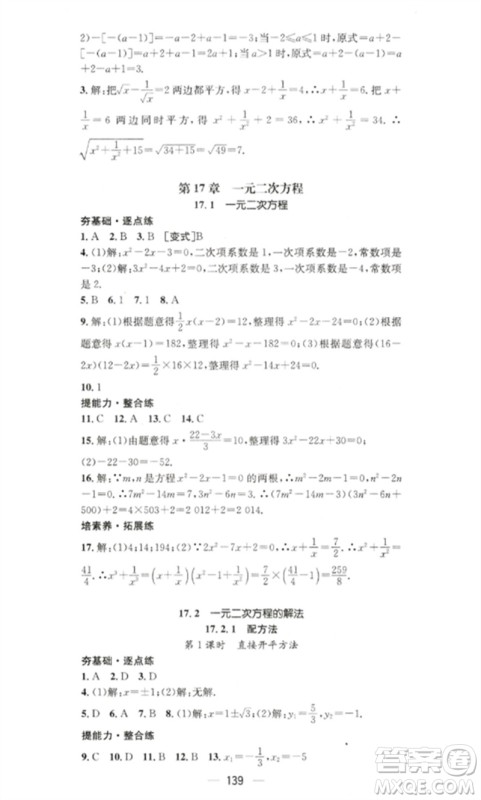 2)-[-(a-1)]=-a-2+a-1=-3;当-2≤a≤1时,原式=a+2-[-(a-1)]=a+2+a-1=2a+1;当a>1时,原式=a+2-a+1=3.
3.解:把√x-1/√x=2两边都平方,得x-2+1/x=4,∴x+
1/x=6两边同时平方,得x²+2+1/x²=36,∴x²+1/x²=34.∴
√(x²+1/x²+15)=√(34+15)=√49=7.
第17章 一元二次方程
17.1 一元二次方程
夯基础·逐点练
1.A 2.B 3.B [变式]B
4.(1)解:x²-2x-3=0,二次项系数是1,一次项系数是-2,常数项是
-3;(2)解:x²-x+2=0,二次项系数是1,一次项系数是-1,常数
项是2.
5.B 6.1 7.1 8.A
9.解:(1)根据题意得1/2x(x-2)=12,整理得x²-2x-24=0;(2)根
据题意得x(x-1)=182,整理得x²-x-182=0;(3)根据题意得(16-
2x)(12-2x)=1/2×16×12,整理得x²-14x+24=0.
10.1
提能力·整合练
11.C 12.A 13.C 14.A
15.解:(1)由题意得x·(22-3x)/3=
(2)-22-30=-52.
16.解:∵m,n是方程x²-2x-1=0的
+2=4×503+2=2 012+2=2 014.
培素养·拓展练
17.解:(1)4;14;194;(2)∵2x²-7x+2=0,
41/4.∴x³+1/x³=(x+1/x)(x²-1+1/x²)=7/2×(41/4-1)=259/8.
17.2 一元二次方程的解法
17.2.1 配方法
第1课时 直接开平方法
夯基础·逐点练
1.A 2.D 3.A
4.(1)解:x=±1;(2)解:
5.D 6.A 7.B 8.(1)解:x=1±√3;(2)解:y₁=
提能力·整合练
9.C 10.D 11.C 12.解:x₁=-1/3,x₂=-5
139
答案圈
MXQE.COM